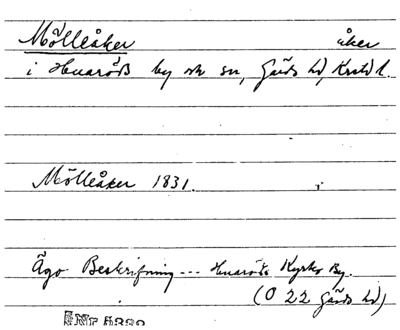 Mölleåker åker
i Huaröd by ok sn, Gärds hd, Krstd l.
Mölleåker 1831.
Ägo Beskrifning --- Huaröds Kyrko By.
(O 22 Gärds hd)
ENr